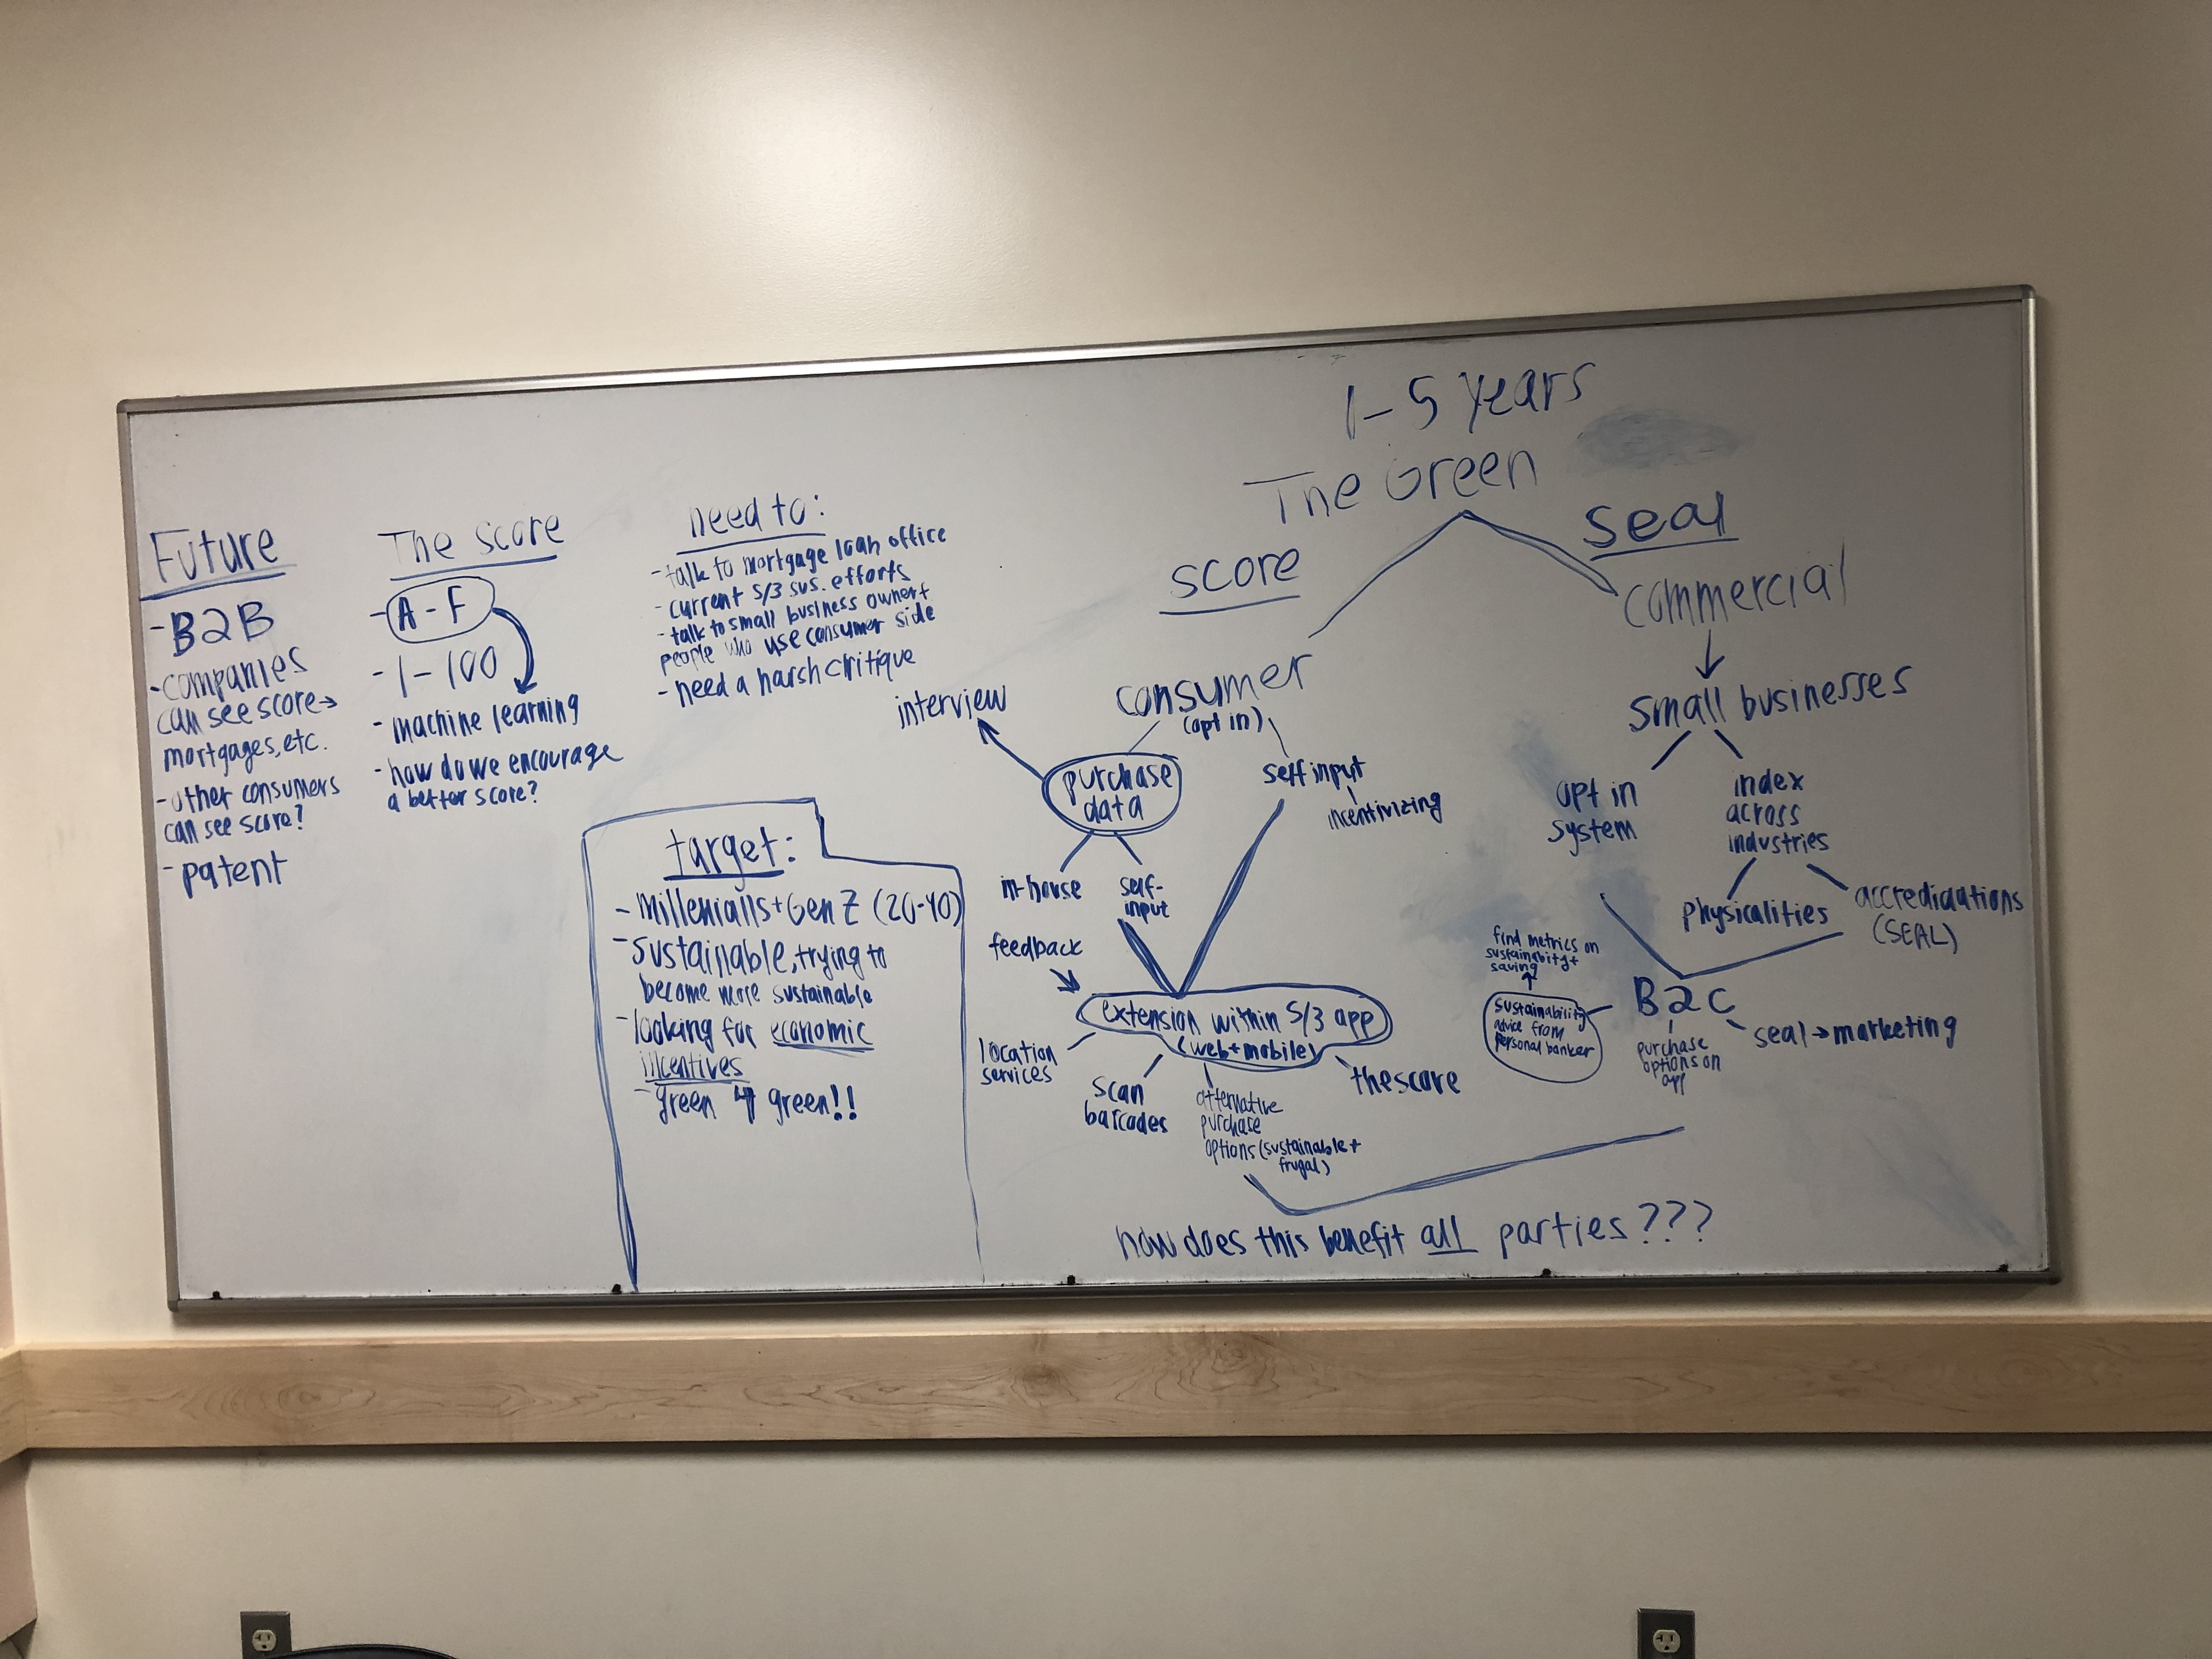 Future
- B2B
- companies
can see score →
mortgages, etc.
- other consumers
can see score?
- patent
The score
- A-F
- 1-100
- machine learning
- how do we encourage
a better score?
need to:
- talk to mortgage loan office
- current 5/3 sus. efforts
- talk to small business owner +
people who use consumer side
- need a harsh critique
target:
- Millenialls + Gen Z (20-40)
- sustainable, trying to
become more sustainable
- looking for economic
incentives
- green 4 green!!
1-5 years
The Green
score
consumer
(opt in)
interview
purchase
data
self input
incentivizing
in-house
self-
input
feedback
extension within 5/3 app
(web + mobile)
location
services
scan
barcodes
alternative
purchase
options (sustainable +
frugal)
the score
seal
commercial
small businesses
opt in
system
index
across
industries
physicalities
accredidations
(SEAL)
find metrics on
sustainability +
saving
sustainability
advice from
personal banker
B2C
purchase
options on
app
seal → marketing
how does this benefit all parties???